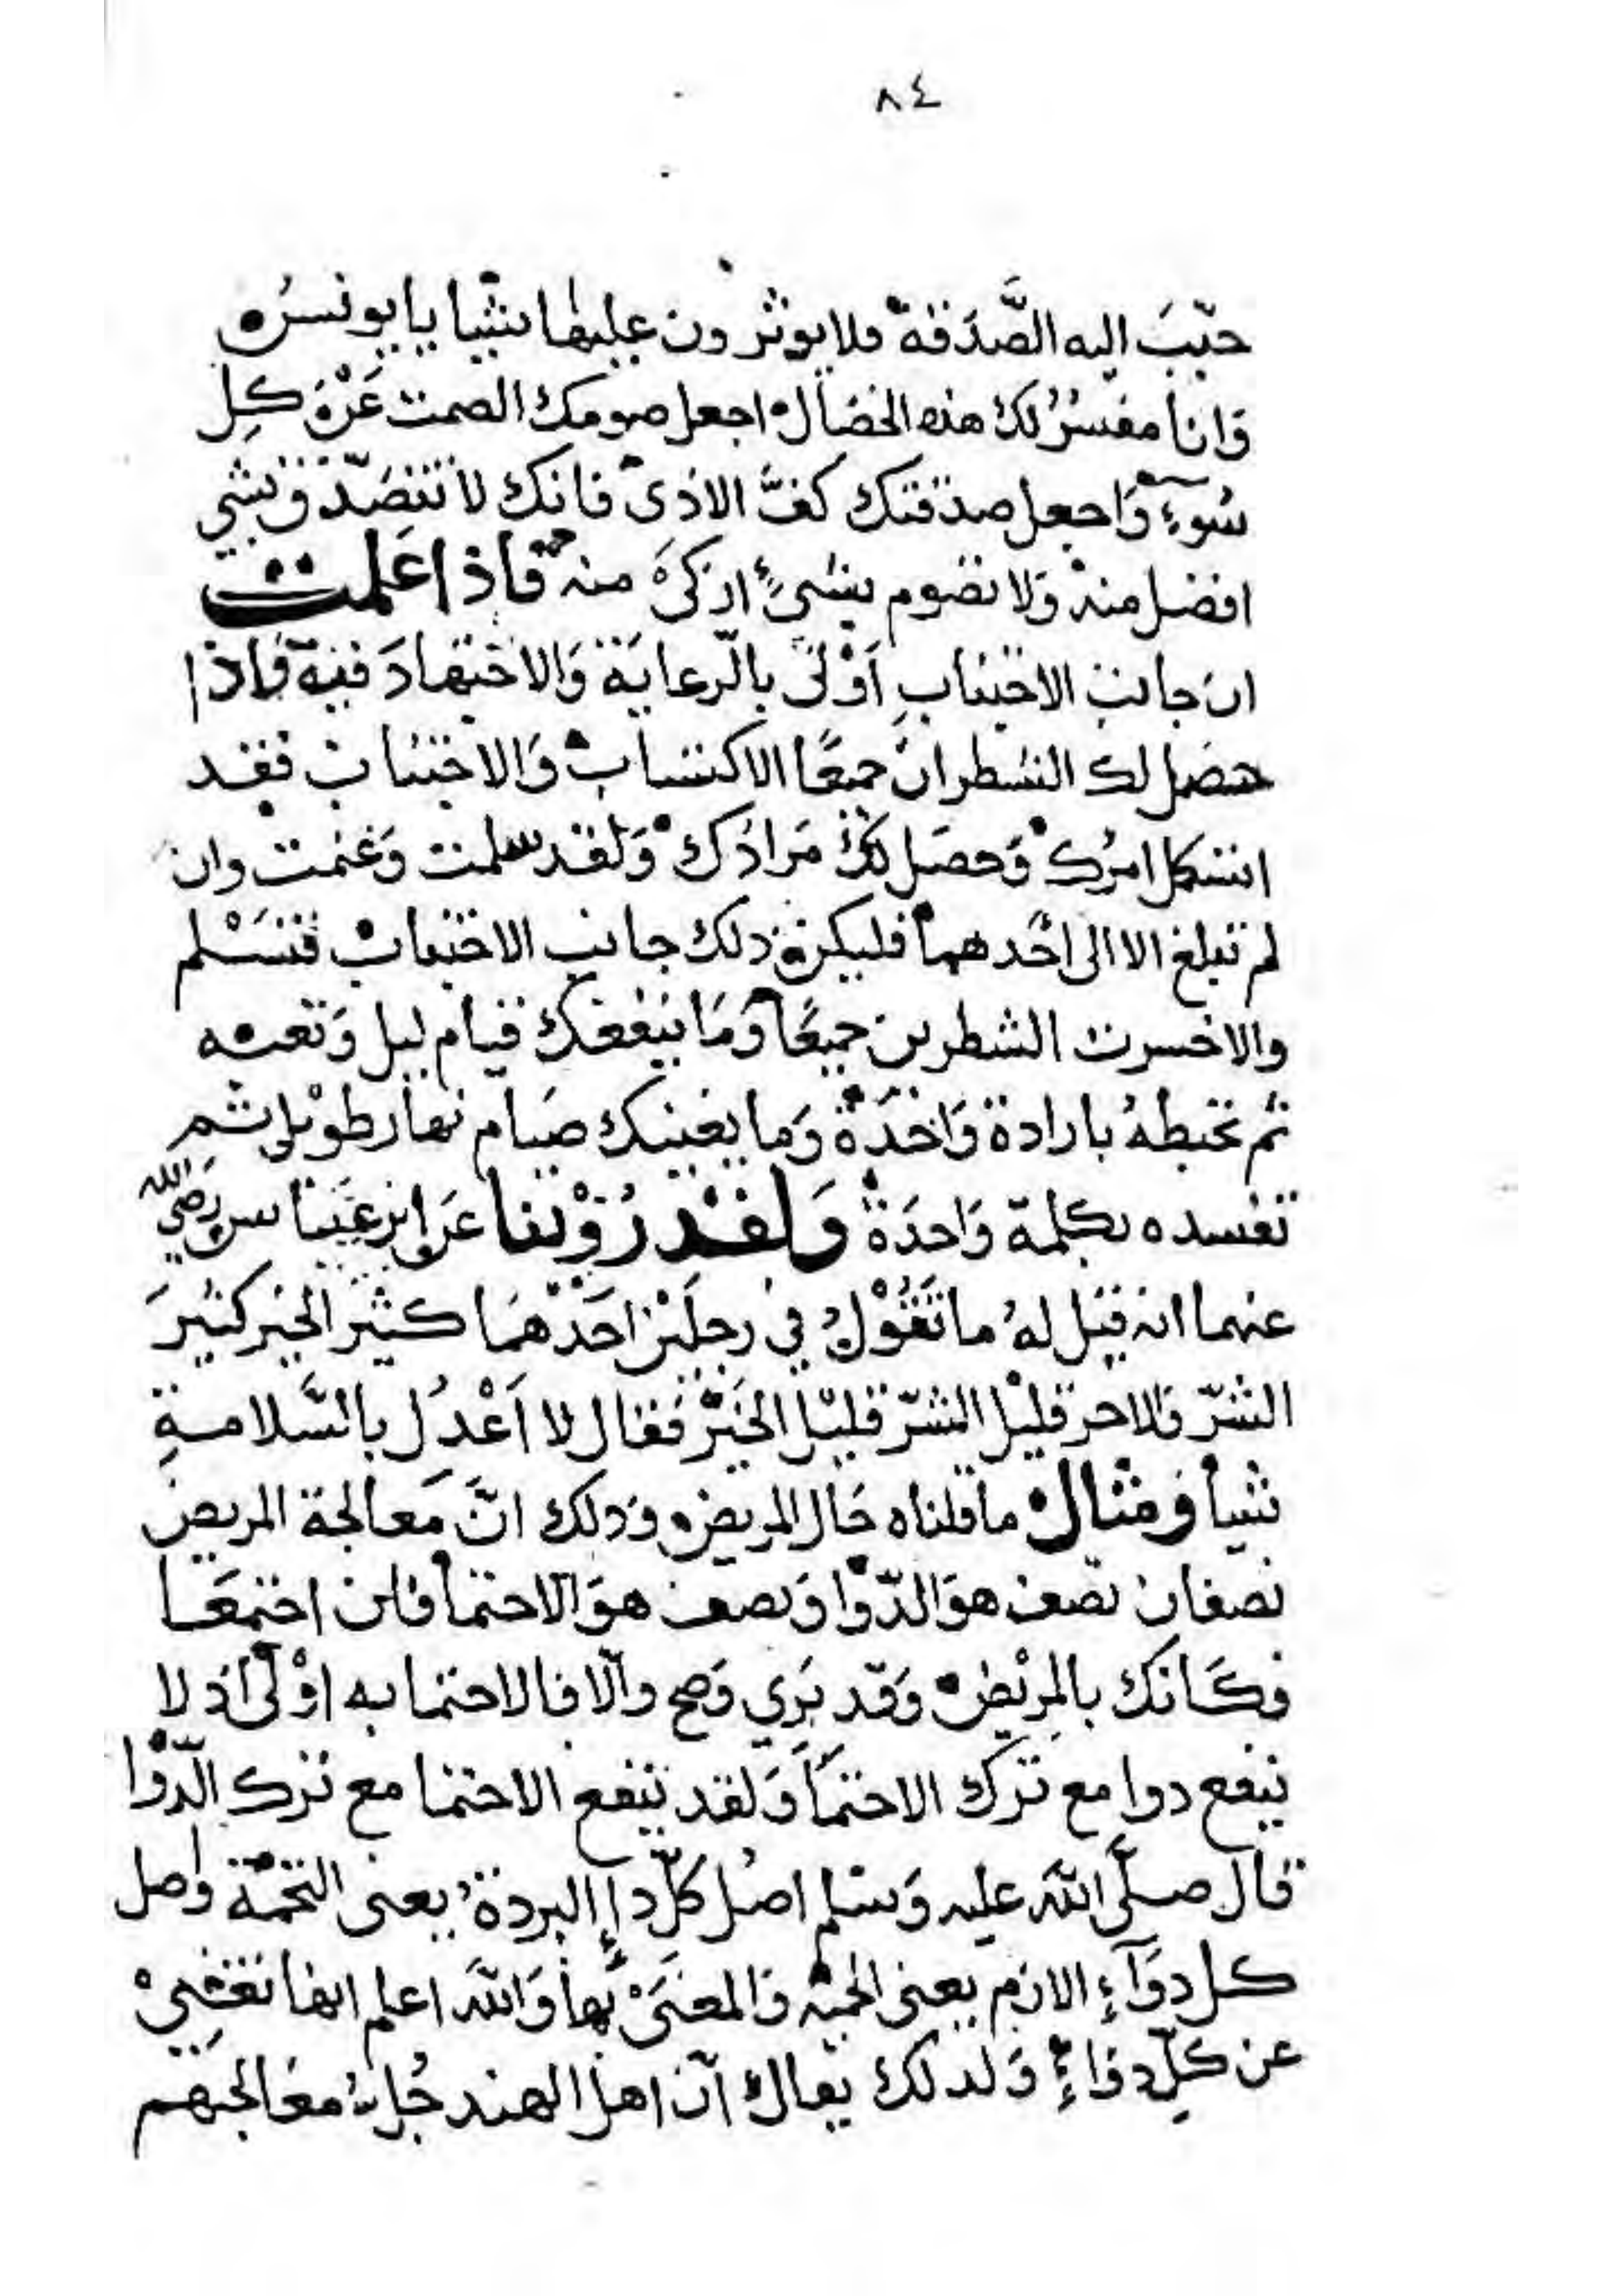 ٨٤
حبّبَ اليه الصَّدَقة فلا يوثرون عليها شيا يا يونسُ
وَانا مفسرٌ لك هذه الخصَال اجعل صومك الصمت عَنْ كل
سُوءٍ وَاجعل صدقتك كفَّ الاذى فانك لا تتصَدّق بشي
افضل منه وَلا تصوم بشيءٍ ازكىَ منه فاذا عَلمت
ان جانب الاجتناب اَوْلَى بالرّعايَة وَالاجتهادَ فيه فاذا
حصَل لك الشطران جميعًا الاكتساب وَالاجتناب فقد
استكمل امرُك وَحصَل لك مرادك وَلقد سلمت وَغنمت وان
لم تبلغ الا الى احَدهما فليكن ذلك جانب الاجتناب فتسَلم
والا خسرت الشطرين جميعًا وَمَا ينفعك قيام ليل وَتعبه
ثم تحبطهُ بارادة وَاحدَة وَما يغنيك صيَام نهار طوْيل ثم
تفسده بكلمة وَاحدَة وَلقدْ رُوّيْنا عَن ابن عَبّاس رَضي الله
عنهما انه قيل لهُ ما تَقُوْلُ في رجلَيْن احَدْهمَا كثيَر الخير كثيرَ
الشرّ وَالاخر قليْل الشرّ قليْل الخَيْر فقال لا اَعْدُل بالسَّلامةِ
شيأ وَمثال ما قلناه حَال المريض وَذلك انَّ مَعالجة المريض
نصفان نصف هوَ الدّوا وَنصف هوَ الاحتما فان اجتمعَا
فكَانك بالمرْيض وَقد بَرِي وَصح والّا فالاحتما به اوْلى اذ لا
ينفع دوا مع ترك الاحتمَا وَلقد ينفع الاحتما مع ترك الدّوْا
قال صلَّى اللّه عليه وَسلم اصْل كلّ دإ البردة يعنى التخمة وَاصل
كل دوَآءٍ الازم يعنى الحمية وَالمعنَىْ بها وَاللّه اعلم انها تغنىْ
عن كلّ دوَاءٍ وَلذلك يقال انّ اهل الهند جُل معَالجتهم